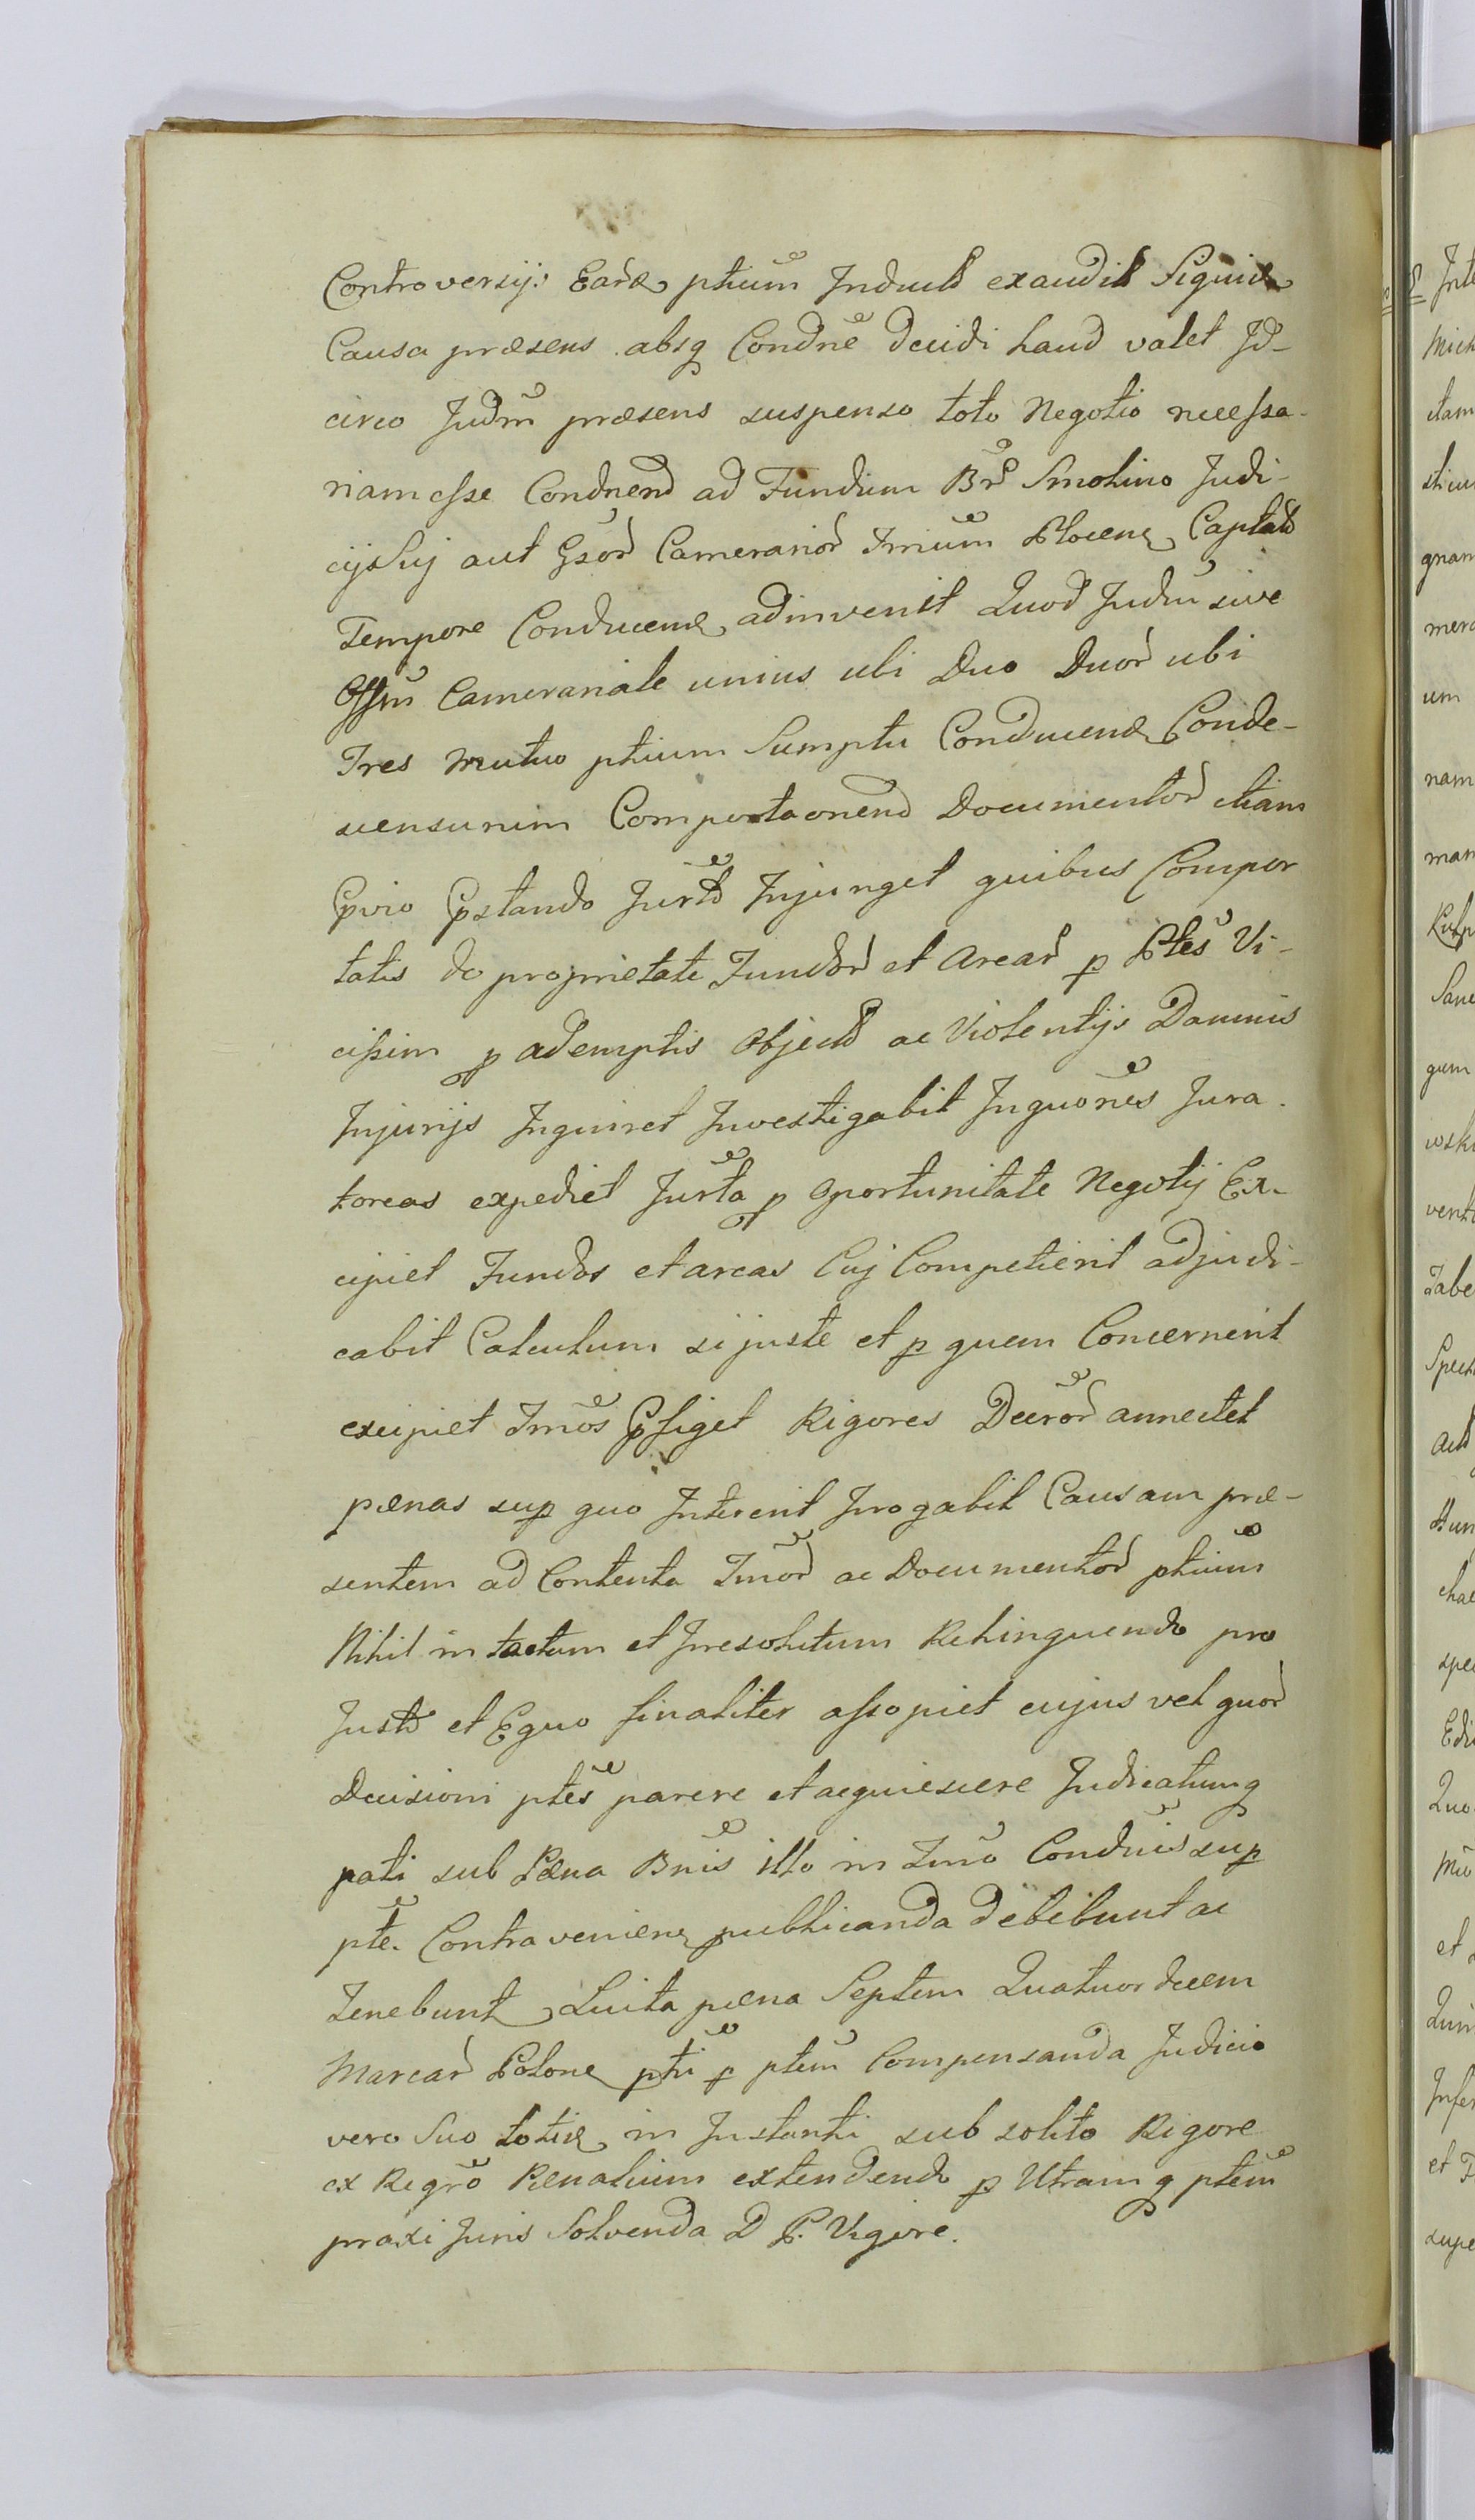 Controversijs Eard ptium Inductis exauditis Siquid
Causa præsens absq Condne decidi haud valet Id-
circo Judm præsens suspenso toto Negotio necessa-
riam esse Condnend ad Fundum Br Smolino Judi-
cij Sui aut Gsor Camerarior Trrum Plocens Captato
Tempore Conducend adinvenit Quod Judm sive
Offm Cameranale unius ubi Duo Duor ubi
Tres mutuo ptium Sumptu Conducend Conde-
scensurum Comportaonend Documentor etiam
Pvio Pstando Jurto Injunget quibus Compor
tatis de proprietate Fundor et Arear p Ptes Vi-
cissim p ademptis Objectis ac Violentijs Damnis
Injurijs Inquiret Investigabit Inquones Jura-
toreas expediet Jurta p oportunitate Negotij Ex-
cipiet Fundos et areas Cuj Competierit adjudi-
cabit Calculum si juste et p quem Concernerit
excipiet Trmos Pfiget Rigores Decror annectet
pænas sup quo Intererit Irrogabit Causam præ-
sentem ad Contenta Trmor ac Documentor ptium
Nihil intactum et Irresolutum Relinquendo pro
Justo et Equo finaliter assopiet cujus vel quor
Decisioni ptes parere et acquiescere Judicatumq
pati sub Pæna Bnis illo in Trmo Condnis sup
pte. Contraveniens publicanda debebunt ac
Tenebunt Luita pæna Septem Quatuordecem
Marcar Polone pti p ptem Compensanda Judicio
vero Suo totid in Instanti sub solito Rigore
ex Regro Pænalium extendendo p Utramq ptem
praxi Juris Solvenda D P. Vigore.